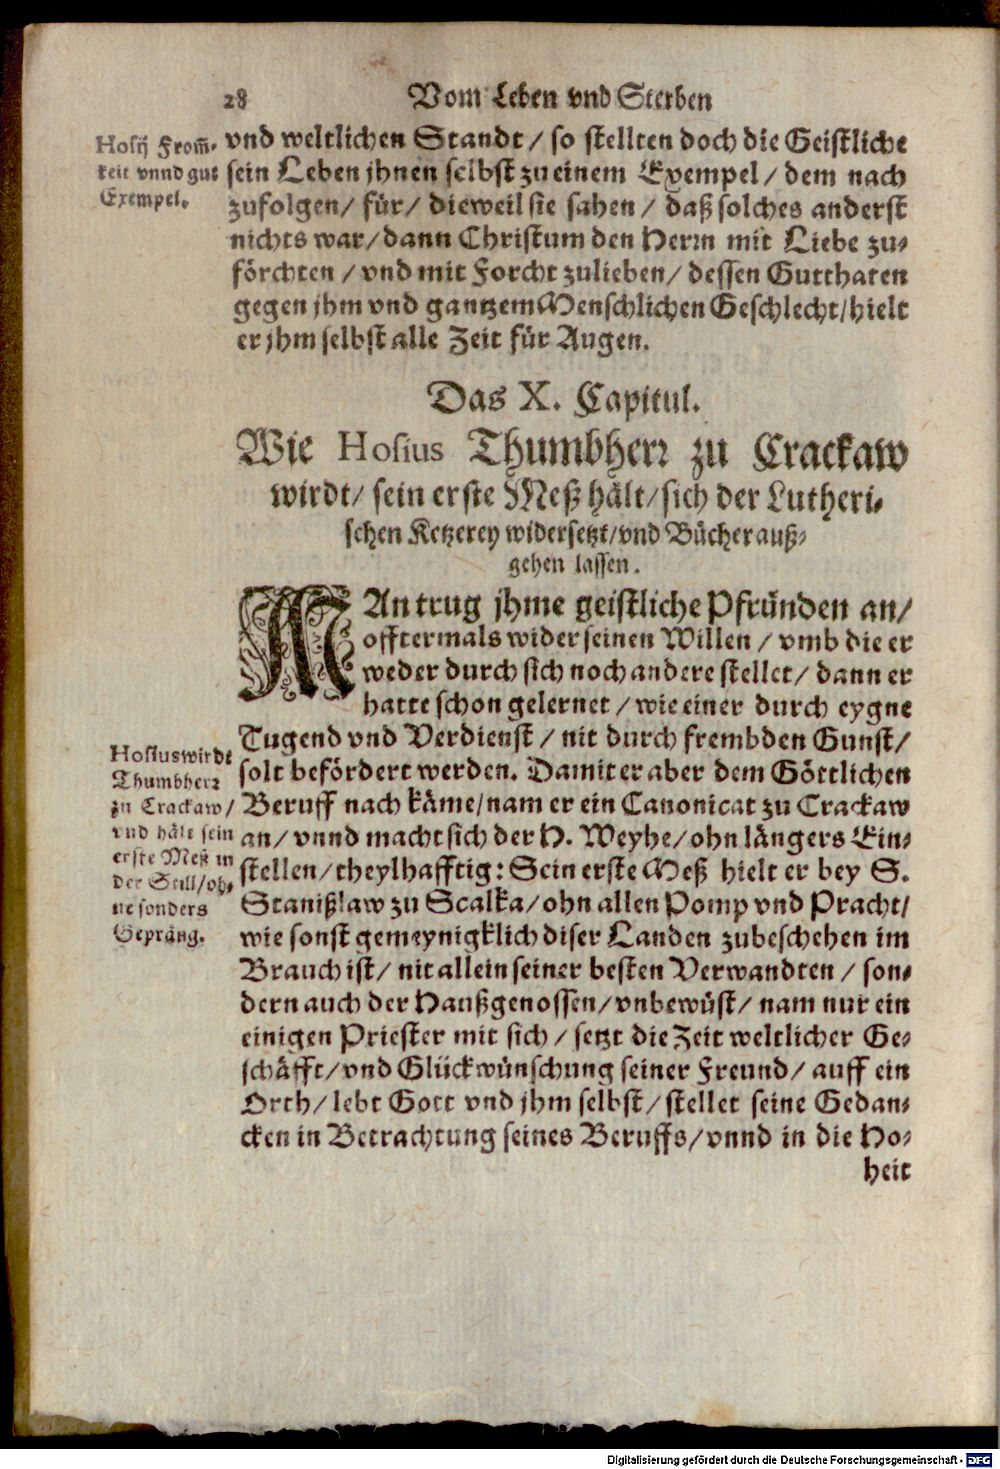 28
Vom Leben vnd Sterben
Hosij From̄-
keit vnnd gut
Exempel.
vnd weltlichen Standt / so stellten doch die Geistliche
sein Leben jhnen selbst zu einem Exempel / dem nach
zufolgen / für / dieweil sie sahen / daß solches anderst
nichts war / dann Christum den Herrn mit Liebe zu-
förchten / vnd mit Forcht zulieben / dessen Gutthaten
gegen jhm vnd gantzem Menschlichen Geschlecht / hielt
er jhm selbst alle Zeit für Augen.
Das X. Capitul.
Wie Hosius Thumbherr zu Crackaw
wirdt / sein erste Meß hält / sich der Lutheri-
schen Ketzerey widersetzt / vnd Bücher auß-
gehen lassen.
MAn trug jhme geistliche Pfründen an /
offtermals wider seinen Willen / vmb die er
weder durch sich noch andere stellet / dann er
hatte schon gelernet / wie einer durch eygne
Tugend vnd Verdienst / nit durch frembden Gunst /
solt befördert werden. Damit er aber dem Göttlichen
Beruff nach käme / nam er ein Canonicat zu Crackaw
an / vnnd macht sich der H. Weyhe / ohn längers Ein-
stellen / theylhafftig: Sein erste Meß hielt er bey S.
Stanißlaw zu Scalka / ohn allen Pomp vnd Pracht /
wie sonst gemeynigklich diser Landen zubeschehen im
Brauch ist / nit allein seiner besten Verwandten / son-
dern auch der Haußgenossen / vnbewüst / nam nur ein
einigen Priester mit sich / setzt die Zeit weltlicher Ge-
schäfft / vnd Glückwünschung seiner Freund / auff ein
Orth / lebt Gott vnd jhm selbst / stellet seine Gedan-
cken in Betrachtung seines Beruffs / vnnd in die Ho-
heit
Hosius wirdt
Thumbherr
zu Crackaw /
vnd hält sein
erste Meß in
der Still / oh-
ne sonders
Gepräng.
Digitalisierung gefördert durch die Deutsche Forschungsgemeinschaft - DFG